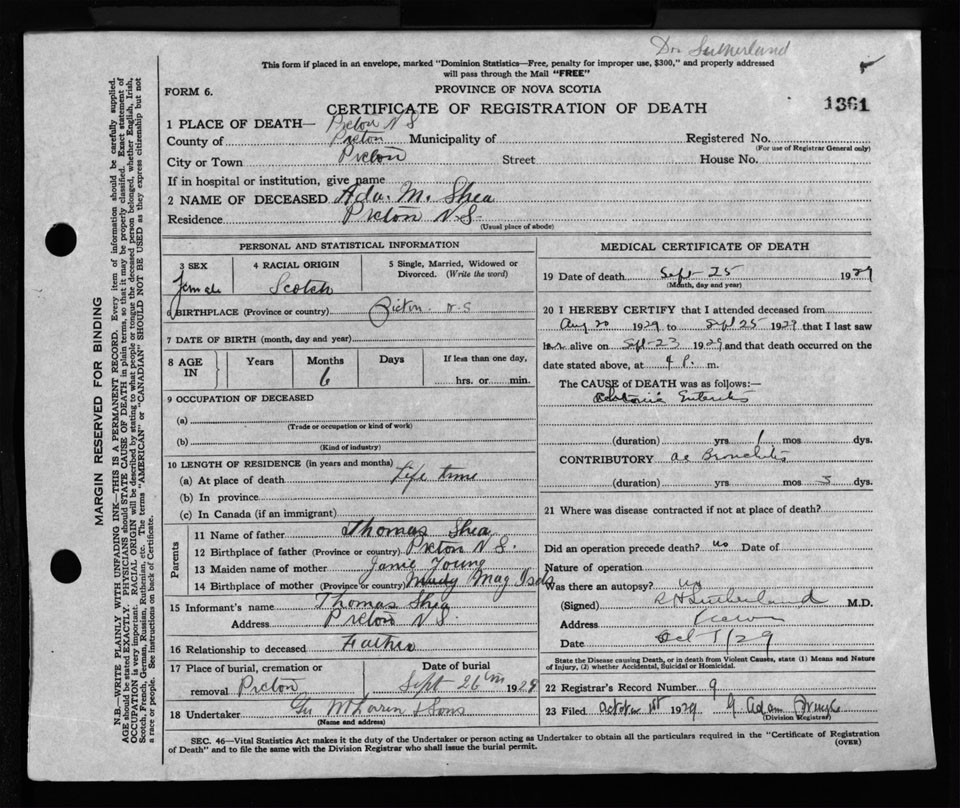 Dr. Sutherland
This form if placed in an envelope, marked "Dominion Statistics—Free, penalty for improper use, $300," and properly addressed
will pass through the Mail "FREE"
FORM 6.
PROVINCE OF NOVA SCOTIA
CERTIFICATE OF REGISTRATION OF DEATH
1361
1 PLACE OF DEATH— Pictou N S
County of Pictou Municipality of Registered No.
(For use of Registrar General only)
City or Town Pictou Street House No.
If in hospital or institution, give name
2 NAME OF DECEASED Ada. M. Shea
Residence Pictou N.S.
(Usual place of abode)
MARGIN RESERVED FOR BINDING
N.B.—WRITE PLAINLY WITH UNFADING INK—THIS IS A PERMANENT RECORD. Every item of information should be carefully supplied.
AGE should be stated EXACTLY. PHYSICIANS should STATE CAUSE OF DEATH in plain terms, so that it may be properly classified. Exact statement of
OCCUPATION is very important. RACIAL ORIGIN will be described by stating to what people or tongue the deceased person belonged, whether English, Irish,
Scotch, French, German, Russian, Ruthenian, etc. The terms "AMERICAN" or "CANADIAN" SHOULD NOT BE USED as they express citizenship but not
a race or people. See instructions on back of Certificate.
PERSONAL AND STATISTICAL INFORMATION
3 SEX
Female
4 RACIAL ORIGIN
Scotch
5 Single, Married, Widowed or
Divorced. (Write the word)
6 BIRTHPLACE (Province or country) Pictou N-S
7 DATE OF BIRTH (month, day and year)
8 AGE
IN
Years
Months
6
Days
If less than one day,
hrs. or min.
9 OCCUPATION OF DECEASED
(a)
(Trade or occupation or kind of work)
(b)
(Kind of industry)
10 LENGTH OF RESIDENCE (in years and months)
(a) At place of death Life time
(b) In province
(c) In Canada (if an immigrant)
Parents
11 Name of father Thomas Shea
12 Birthplace of father (Province or country) Pictou N S.
13 Maiden name of mother Janie Young
14 Birthplace of mother (Province or country) Mag Isds
15 Informant's name Thomas Shea
Address Pictou N S.
16 Relationship to deceased Father
17 Place of burial, cremation or
removal Pictou
Date of burial
Sept 26th 1929
18 Undertaker & Sons
(Name and address)
MEDICAL CERTIFICATE OF DEATH
19 Date of death Sept-25 1929
(Month, day and year)
20 I HEREBY CERTIFY that I attended deceased from
Aug 20 1929 to Sept 25 1929 that I last saw
her alive on Sept-23 1929 and that death occurred on the
date stated above, at 4 P. m.
The CAUSE of DEATH was as follows:—
Enteritis
(duration) yrs 1 mos dys.
CONTRIBUTORY ac Bronchitis
(duration) yrs mos 3 dys.
21 Where was disease contracted if not at place of death?
Did an operation precede death? no Date of
Nature of operation
Was there an autopsy? no
(Signed) R H Sutherland M.D.
Address Pictou
Date Oct 1/29
State the Disease causing Death, or in death from Violent Causes, state (1) Means and Nature
of Injury, (2) whether Accidental, Suicidal or Homicidal.
22 Registrar's Record Number 9
23 Filed October 1st 1929 G Adam
(Division Registrar)
SEC. 46—Vital Statistics Act makes it the duty of the Undertaker or person acting as Undertaker to obtain all the particulars required in the "Certificate of Registration
of Death" and to file the same with the Division Registrar who shall issue the burial permit.
(OVER)